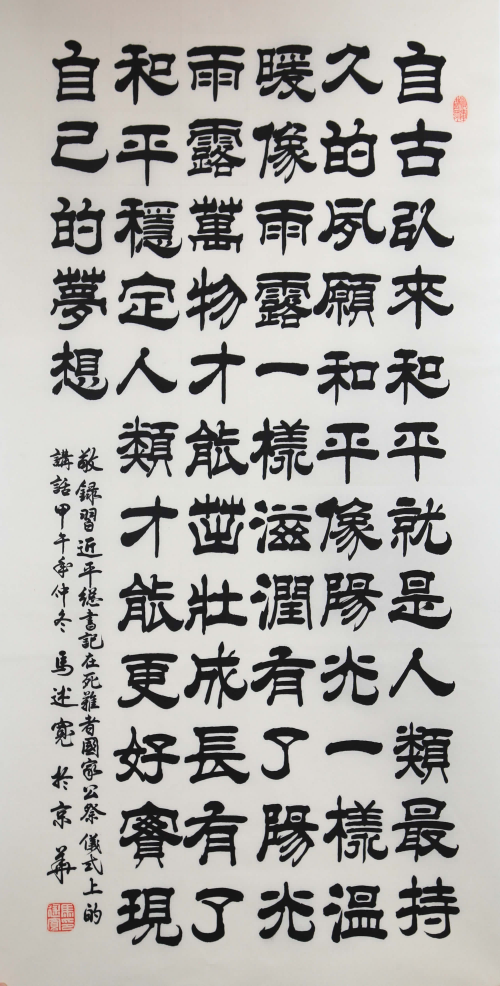 自古以來和平就是人類最持
久的夙願和平像陽光一樣溫
暖像雨露一樣滋潤有了陽光
雨露萬物才能茁壯成長有了
和平穩定人類才能更好實現
自己的夢想
敬錄習近平總書記在死難者國家公祭儀式上的
講話甲午年仲冬馬述寬於京華